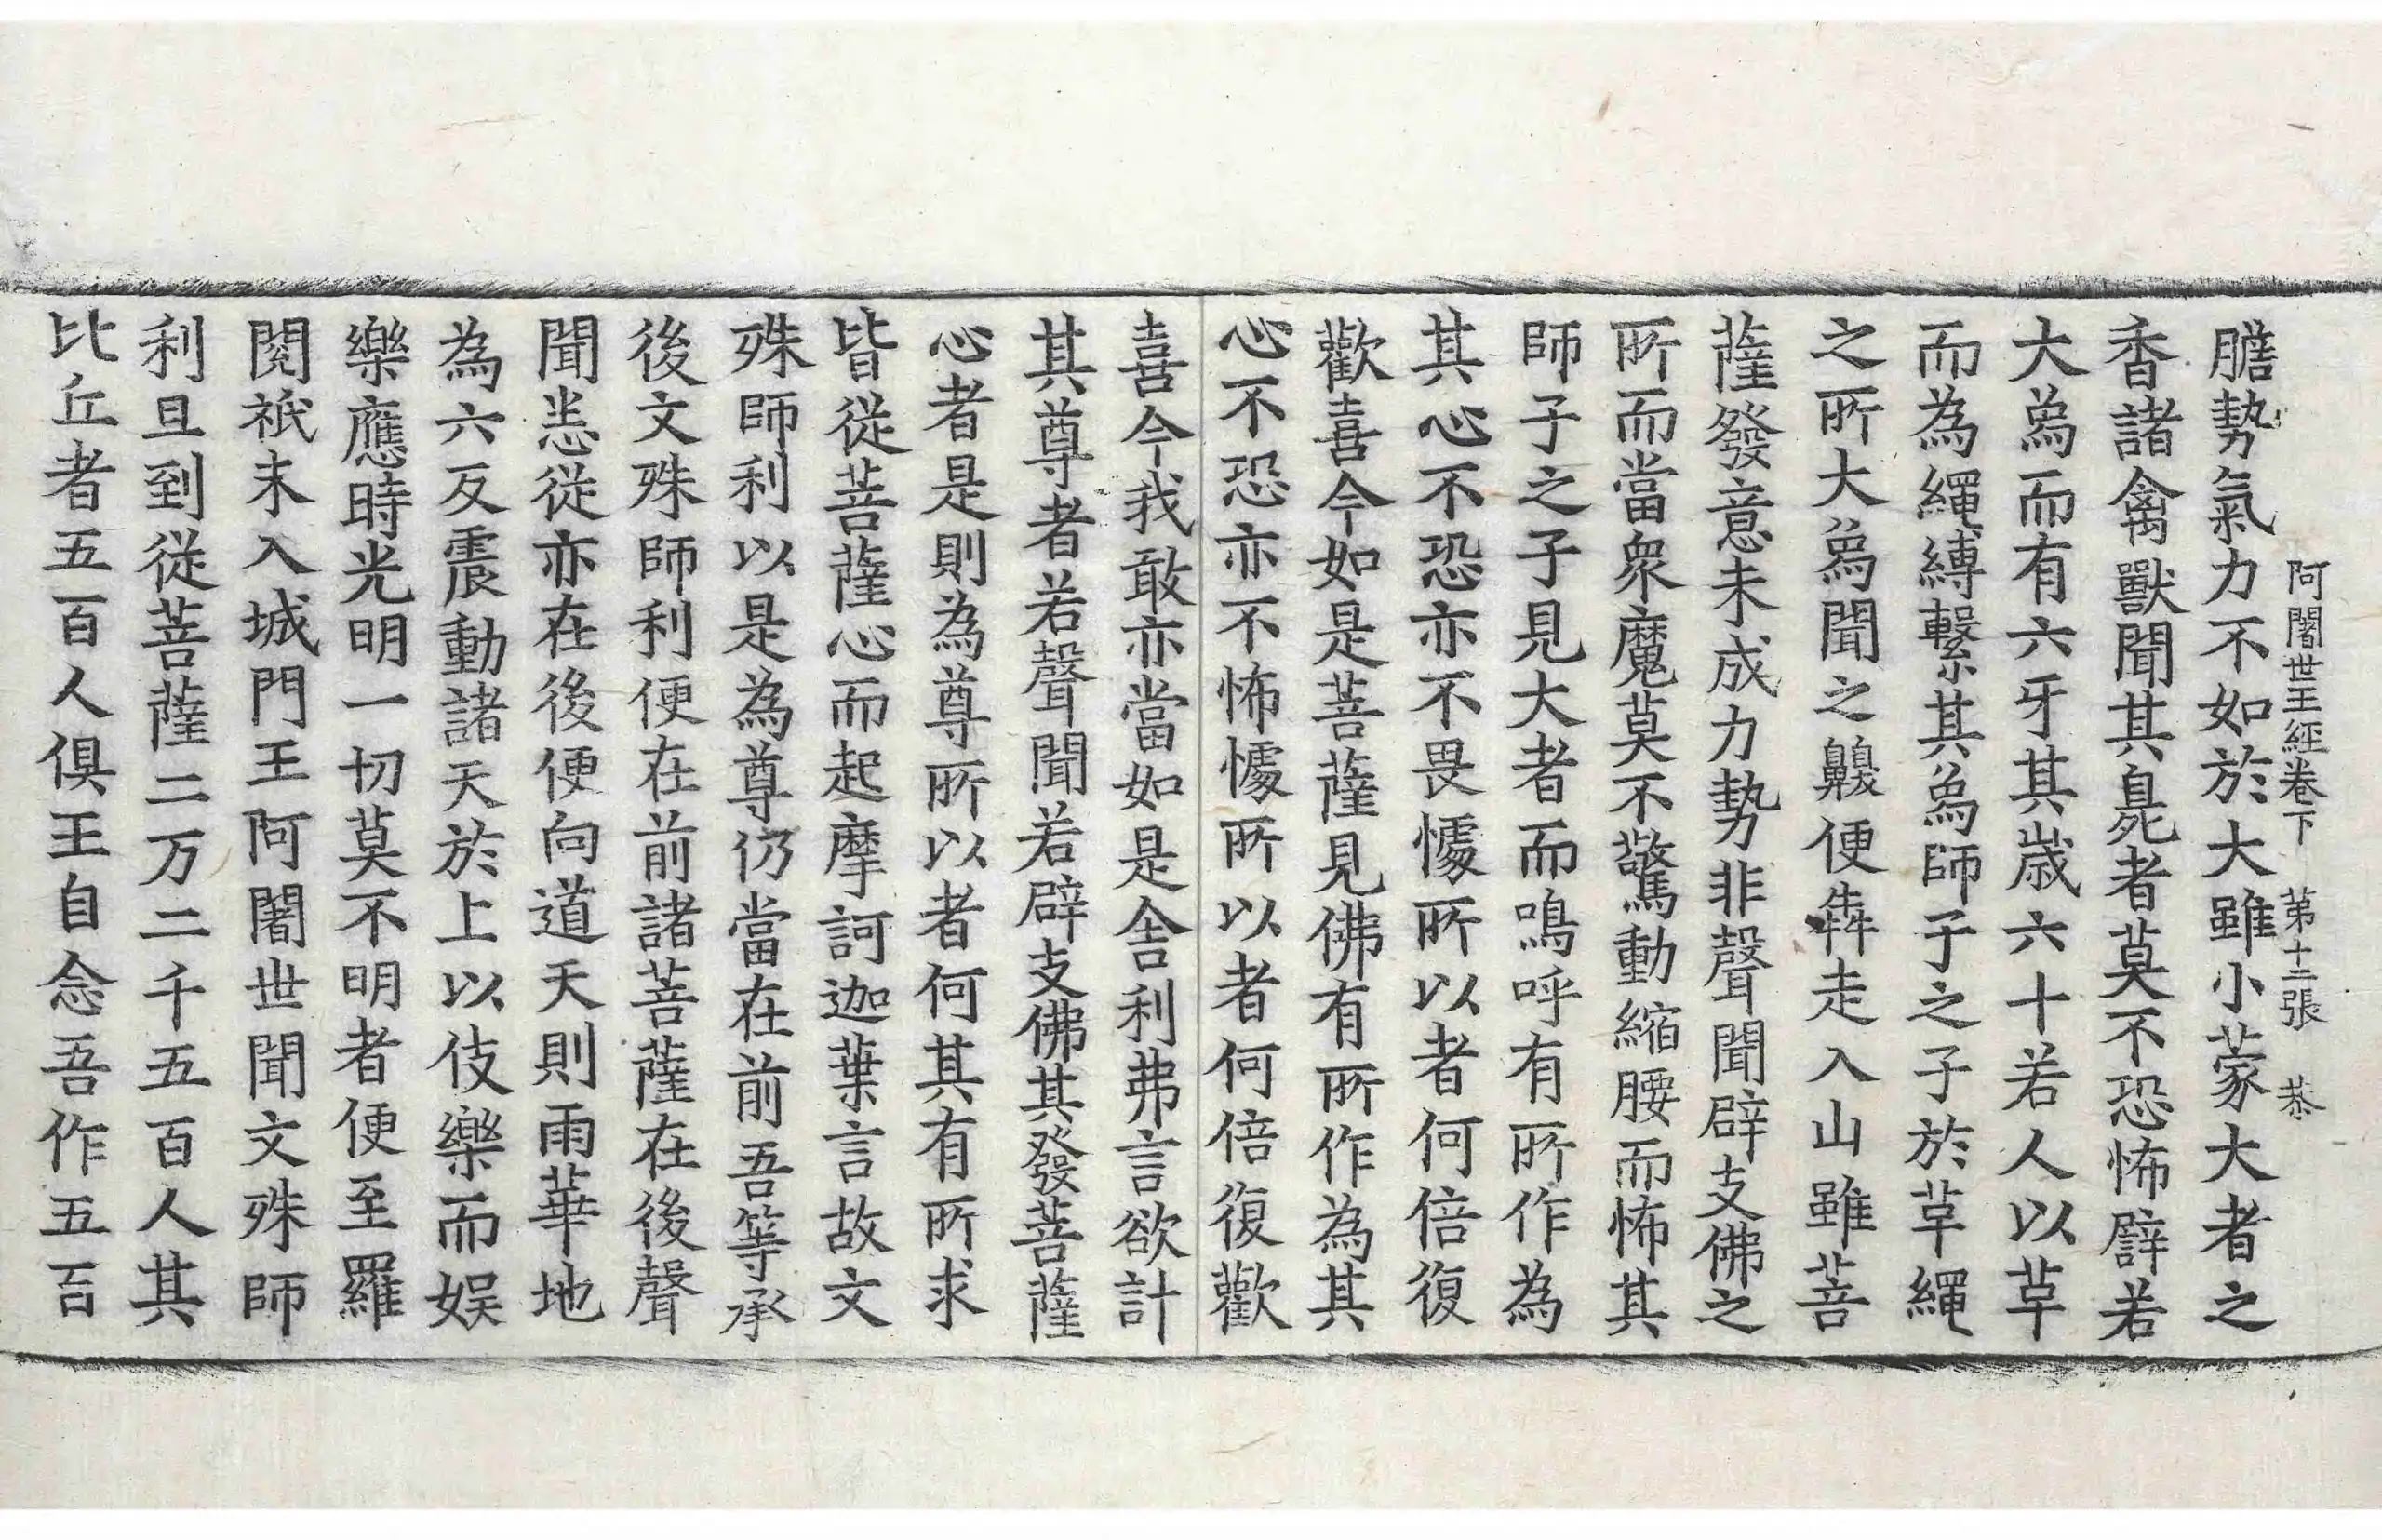 阿闍世王經卷下　第十二張　恭
膽勢氣力不如於大雖小蒙大者之
香諸禽獸聞其臭者莫不恐怖辟若
大為而有六牙其歲六十若人以草
而為繩縛繫其為師子之子於草繩
之所大為聞之齅便犇走入山雖菩
薩發意未成力勢非聲聞辟支佛之
所而當衆魔莫不驚動縮腰而怖其
師子之子見大者而鳴呼有所作為
其心不恐亦不畏懅所以者何倍復
歡喜今如是菩薩見佛有所作為其
心不恐亦不怖懅所以者何倍復歡
喜今我敢亦當如是舍利弗言欲計
其尊者若聲聞若辟支佛其發菩薩
心者是則為尊所以者何其有所求
皆從菩薩心而起摩訶迦葉言故文
殊師利以是為尊仍當在前吾等承
後文殊師利便在前諸菩薩在後聲
聞恙從亦在後便向道天則雨華地
為六反震動諸天於上以伎樂而娛
樂應時光明一切莫不明者便至羅
閱祇末入城門王阿闍世聞文殊師
利旦到從菩薩二万二千五百人其
比丘者五百人俱王自念吾作五百